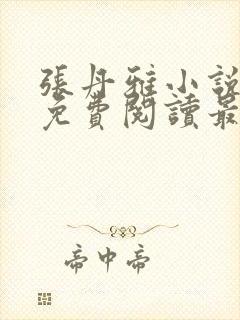 張丹雅小說
免費閱讀最
帝中帝